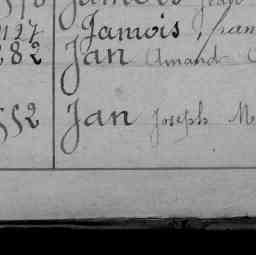 Jamois
127 Jamois
282 Jan Amand
552 Jan Joseph M